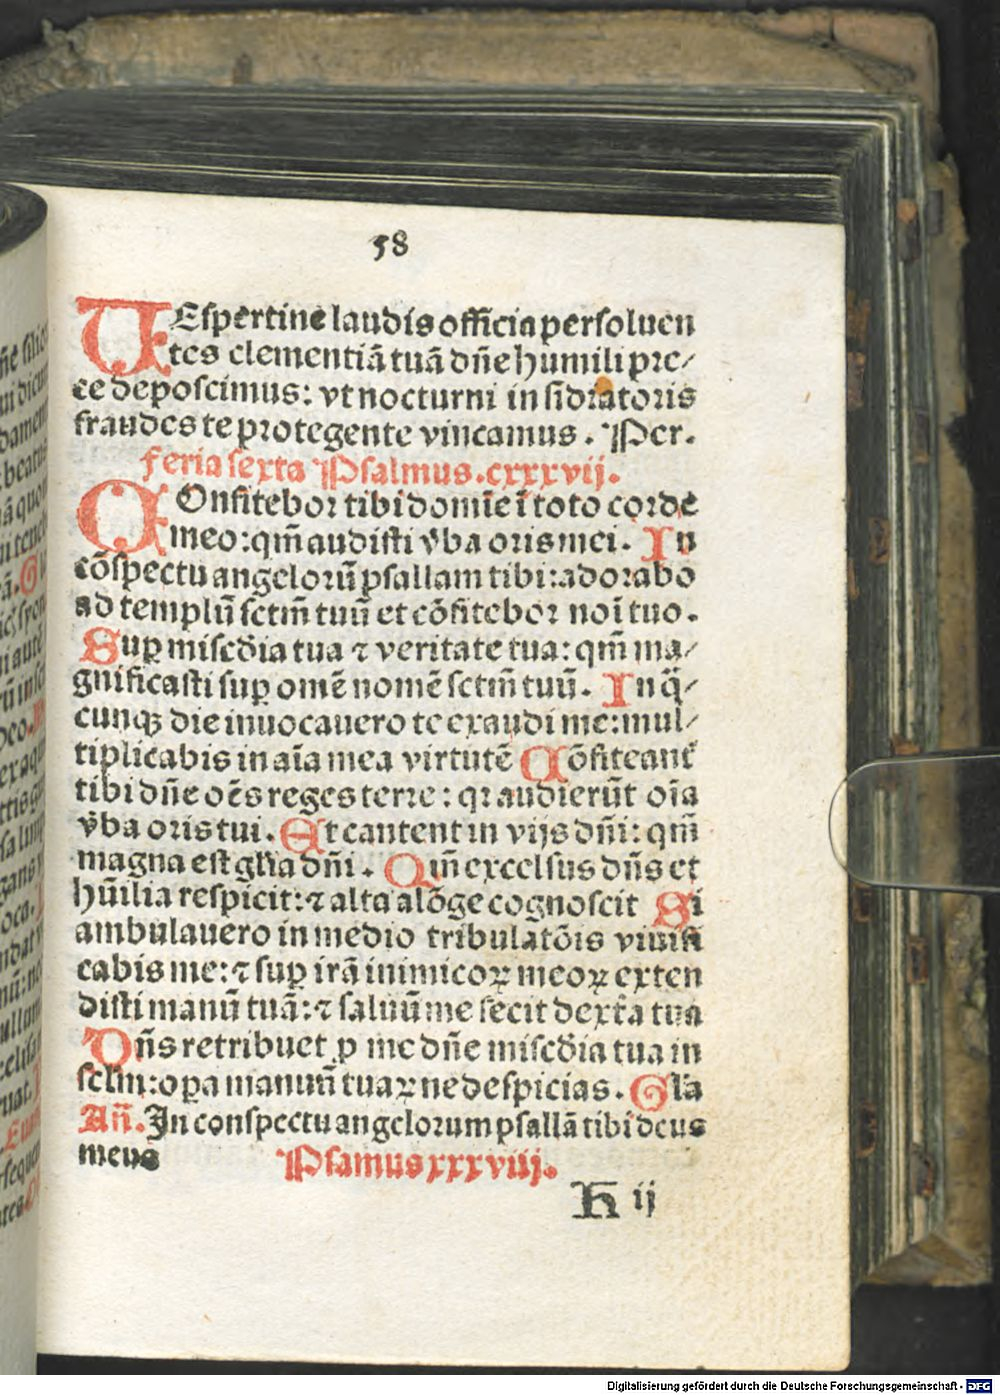 58
VEspertine laudis officia persoluen
tes clementiā tuā dn̄e humili pre⸗
ce deposcimus: vt nocturni insidiatoris
fraudes te protegente vincamus. Per.
feria sexta Psalmus.cxxxvij.
COnfitebor tibi domīe ī toto corde
meo: qm̄ audisti v̓ba oris mei. In
cōspectu angelorū psallam tibi: adorabo
ad templū sctm̄ tuū et cōfitebor noī tuo.
Suꝑ misc̄dia tua ⁊ veritate tua: qm̄ ma⸗
gnificasti suꝑ omē nomē sctm̄ tuū. In q̄⸗
cunqꝫ die inuocauero te exaudi me: mul⸗
tiplicabis in aīa mea virtutē Cōfiteant᷑
tibi dn̄e oēs reges terre: qꝛ audierūt oīa
v̓ba oris tui. Et cantent in vijs dn̄i: qm̄
magna est gl̄ia dn̄i. Qm̄ excelsus dn̄s et
hūilia respicit: ⁊ alta a lōge cognoscit Si
ambulauero in medio tribulatōis viuifi
cabis me: ⁊ suꝑ irā inimicoꝝ meoꝝ exten
disti manū tuā: ⁊ saluū me fecit dext̓a tua
Dn̄s retribuet ꝓ me dn̄e misc̄dia tua in
sclm̄: oꝑa manuū tuaꝝ ne despicias. Gl̄a
An̄. In conspectu angelorum psallā tibi deus
meus Psamus xxxviij.
H ij
Digitalisierung gefördert durch die Deutsche Forschungsgemeinschaft - DFG